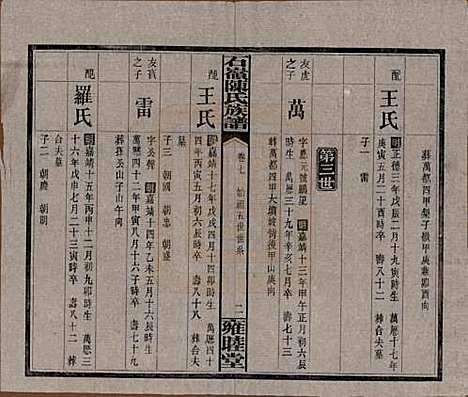 葬萬都四甲梨子根甲庚兼卯酉向
配 王氏
明正德三年戊辰二月十九寅時生 萬歷十七年
庚寅五月二十酉時卒 壽八十三 合夫墓
子一 雷
第三世
友虎之子 萬
字 元號鵬 明嘉靖十三年甲午正月初六辰
時生 萬歷三十九年辛亥七月卒 壽七十三
葬萬都四甲大墳坡背後甲山庚向
配 王氏
明嘉靖十七年戊戌四月十四卯時生 萬歷四十
四年丙辰十二月十八辰時卒 壽八十
子三 朝國 朝忠 朝盛
石嶺陳氏族譜
卷之七 始祖五世世系 二
雍睦堂
友 之子 雷
字 明嘉靖十四年乙未五月十六辰時生
萬歷四十二年甲寅八月十六子時卒 壽七十九
葬 山子山午向
配 羅氏
明嘉靖十五年丙申十二月初九卯時生 萬歷三
十六年戊申七月二十三寅時卒 壽八十二 葬
合夫墓
子二 朝慶 朝明